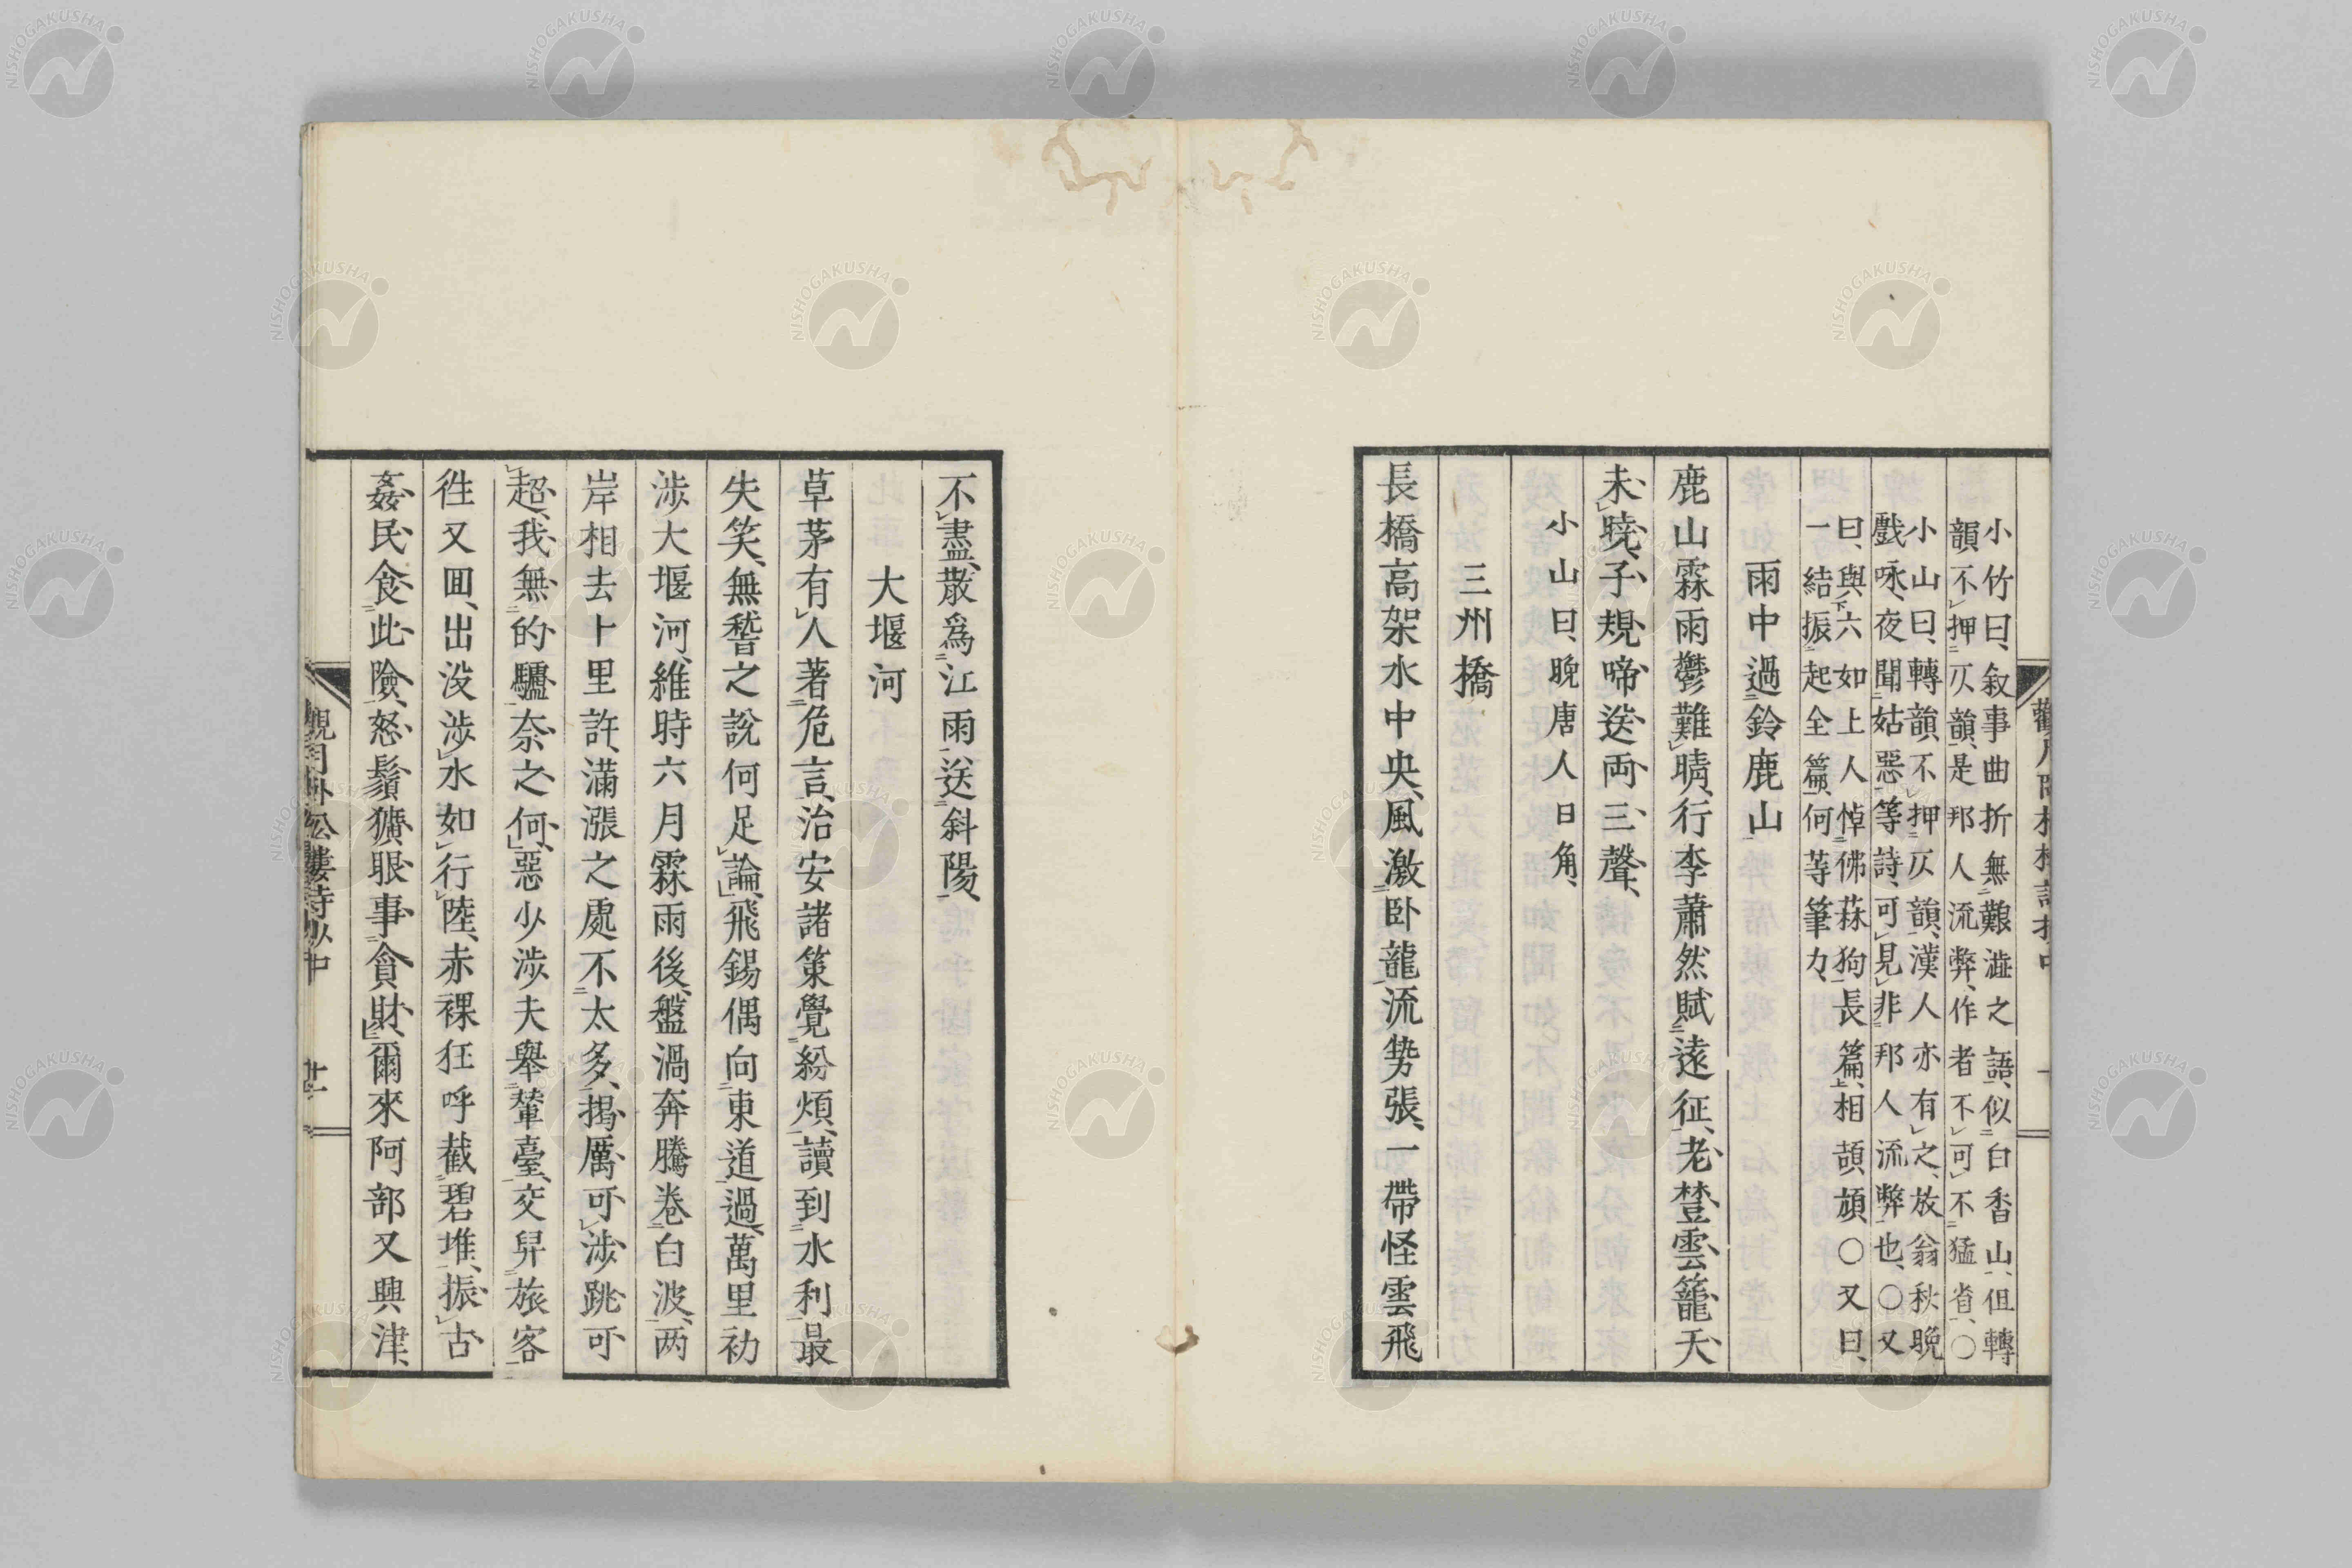 小竹曰、叙事曲折無艱澁之語、似白香山、但轉
韻不押仄韻、是邦人流弊、作者不可不猛省、〇
小山曰、轉韻不押仄韻、漢人亦有之、放翁秋晩
戯咏、夜聞姑惡等詩、可見、非邦人流弊也、〇又
曰、與六如上人悼佛菻狗長篇、相頡頏〇又曰、
一結振起全篇、何等筆力、
雨中過鈴鹿山
鹿山霖雨鬱難晴、行李蕭然賦遠征、老𦾔雲籠天
未曉、子規啼送両三聲、
小山曰、晩唐人口角、
三州橋
長橋高架水中央、風激卧龍流势張、一帶怪雲飛
不盡、散爲江雨、送斜陽、
大堰河
草茅有人著危言、治安諸策覺紛煩、讀到水利最
失笑、無稽之說何足論、飛錫偶向東道過、萬里初
涉大堰河、維時六月霖雨後、盤渦奔騰卷白波、两
岸相去十里許、滿漲之處不太多、揭厲可涉跳可
超、我無的驢奈之何、惡少涉夫舉輦臺、交舁旅客
徃又囬、出没涉水如行陸、赤裸狂呼截碧堆、振古
姦民食此險、怒鬚獷眼事貪財、爾來阿部又興津、
NISHOGAKUSHA